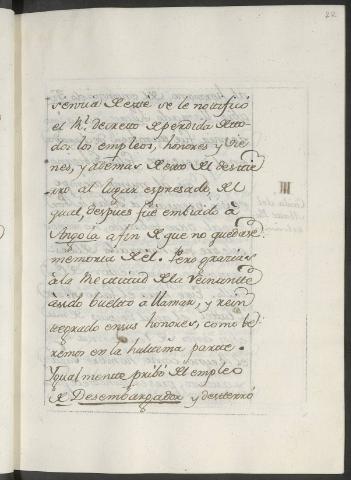 22
sencia de este se le notificó
el Rl. decreto de perdida de to-
dos los empleos, honores y bie-
nes, y además de esto del destier-
ro al lugar expresado, del
qual, despues fué embiado à
Angola a fin de que no quedase
memoria de él. Pero gracias
à la Rectitud de la Reinante
à sido buelto a llamar, y rein-
tegrado en sus honores, como ve-
remos en la hultima parte.
Igualmente pribó del empleo
de Desembargador y desterró
III.